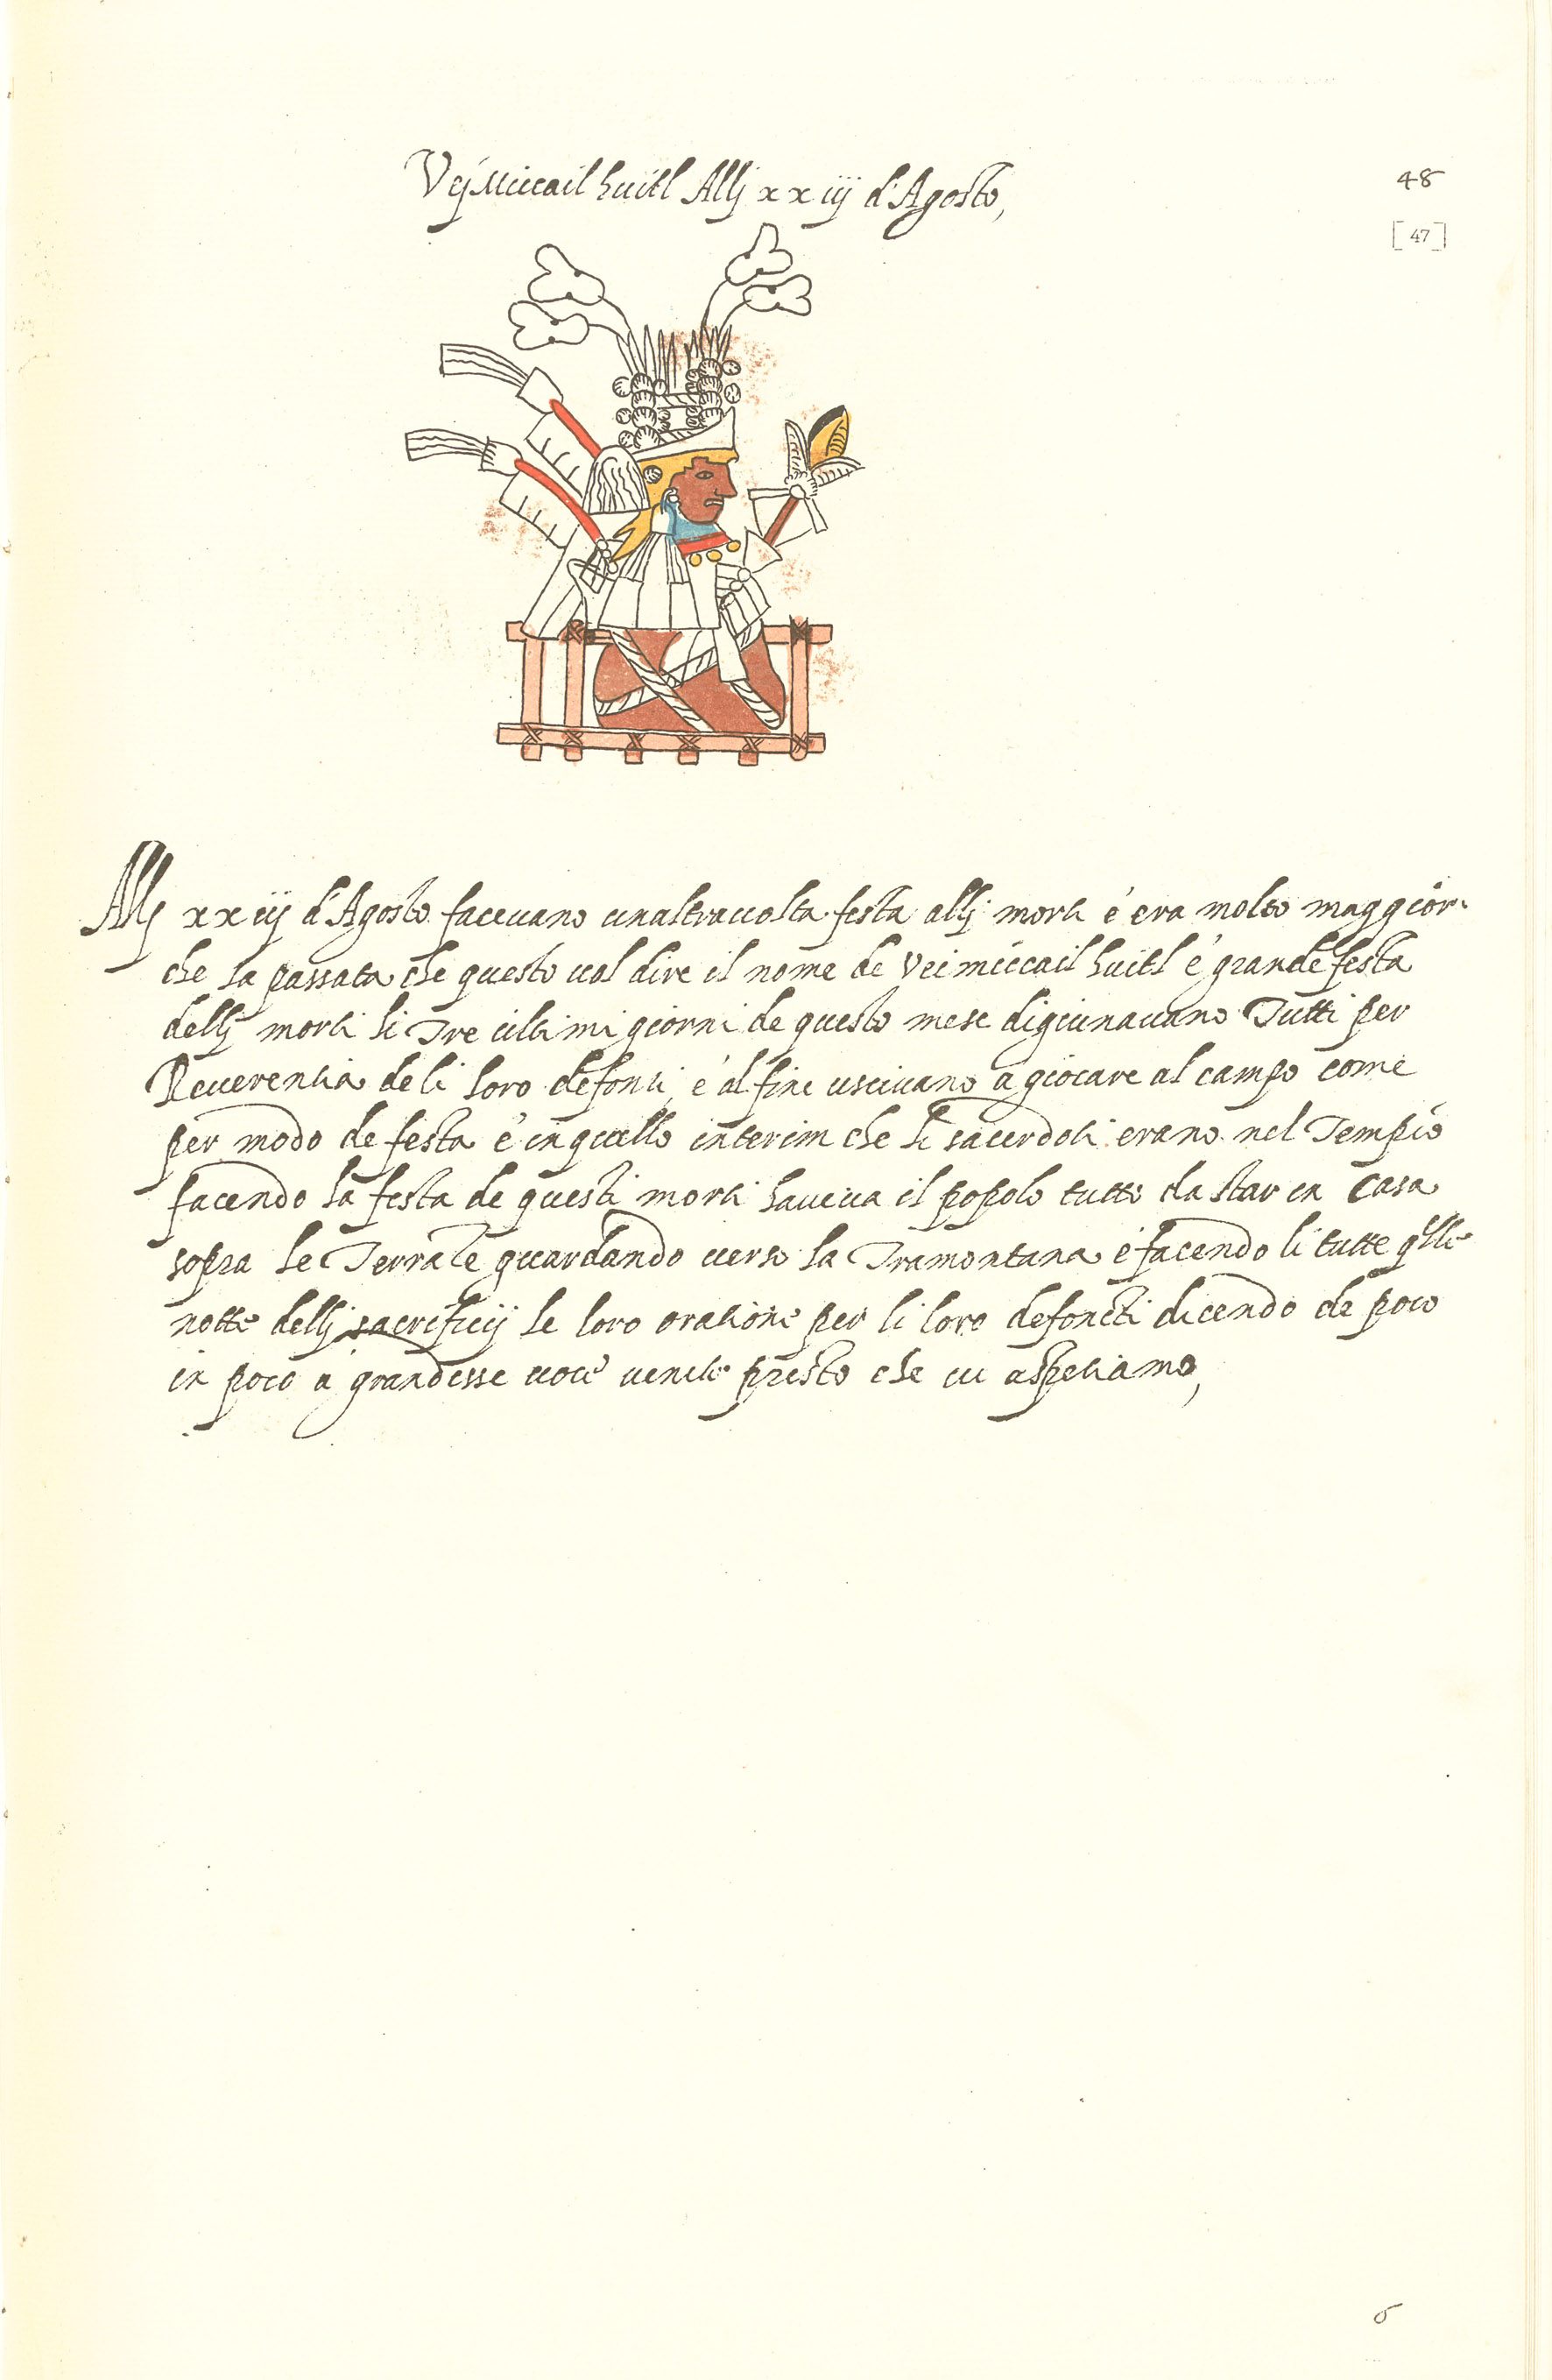 Vei Miccail huitl Allj xxiij d'Agosto,
48
[47]
Allj xxiij d'Agosto facevano unaltra volta festa allj morti é era molto maggior
che la passata che questo vol dire il nome de Vei miccail huitl é grande festa
dellj morti li Tre ultimi giorni de questo mese digiunavano Tutti per
Reverentia de li loro defonti, é al fine uscivano a giocare al campo come
per modo de festa é in quello interim che li sacerdoti erano nel Tempio
facendo la festa de questi morti haveva il popolo tutto da star in Casa
sopra le Terraze guardando verso la Tramontana é facendo li tutte qlle
notte dellj sacrificij le loro oratione per li loro defoncti dicendo de poco
in poco á grandesse voce venite presto che vi aspetiamo,